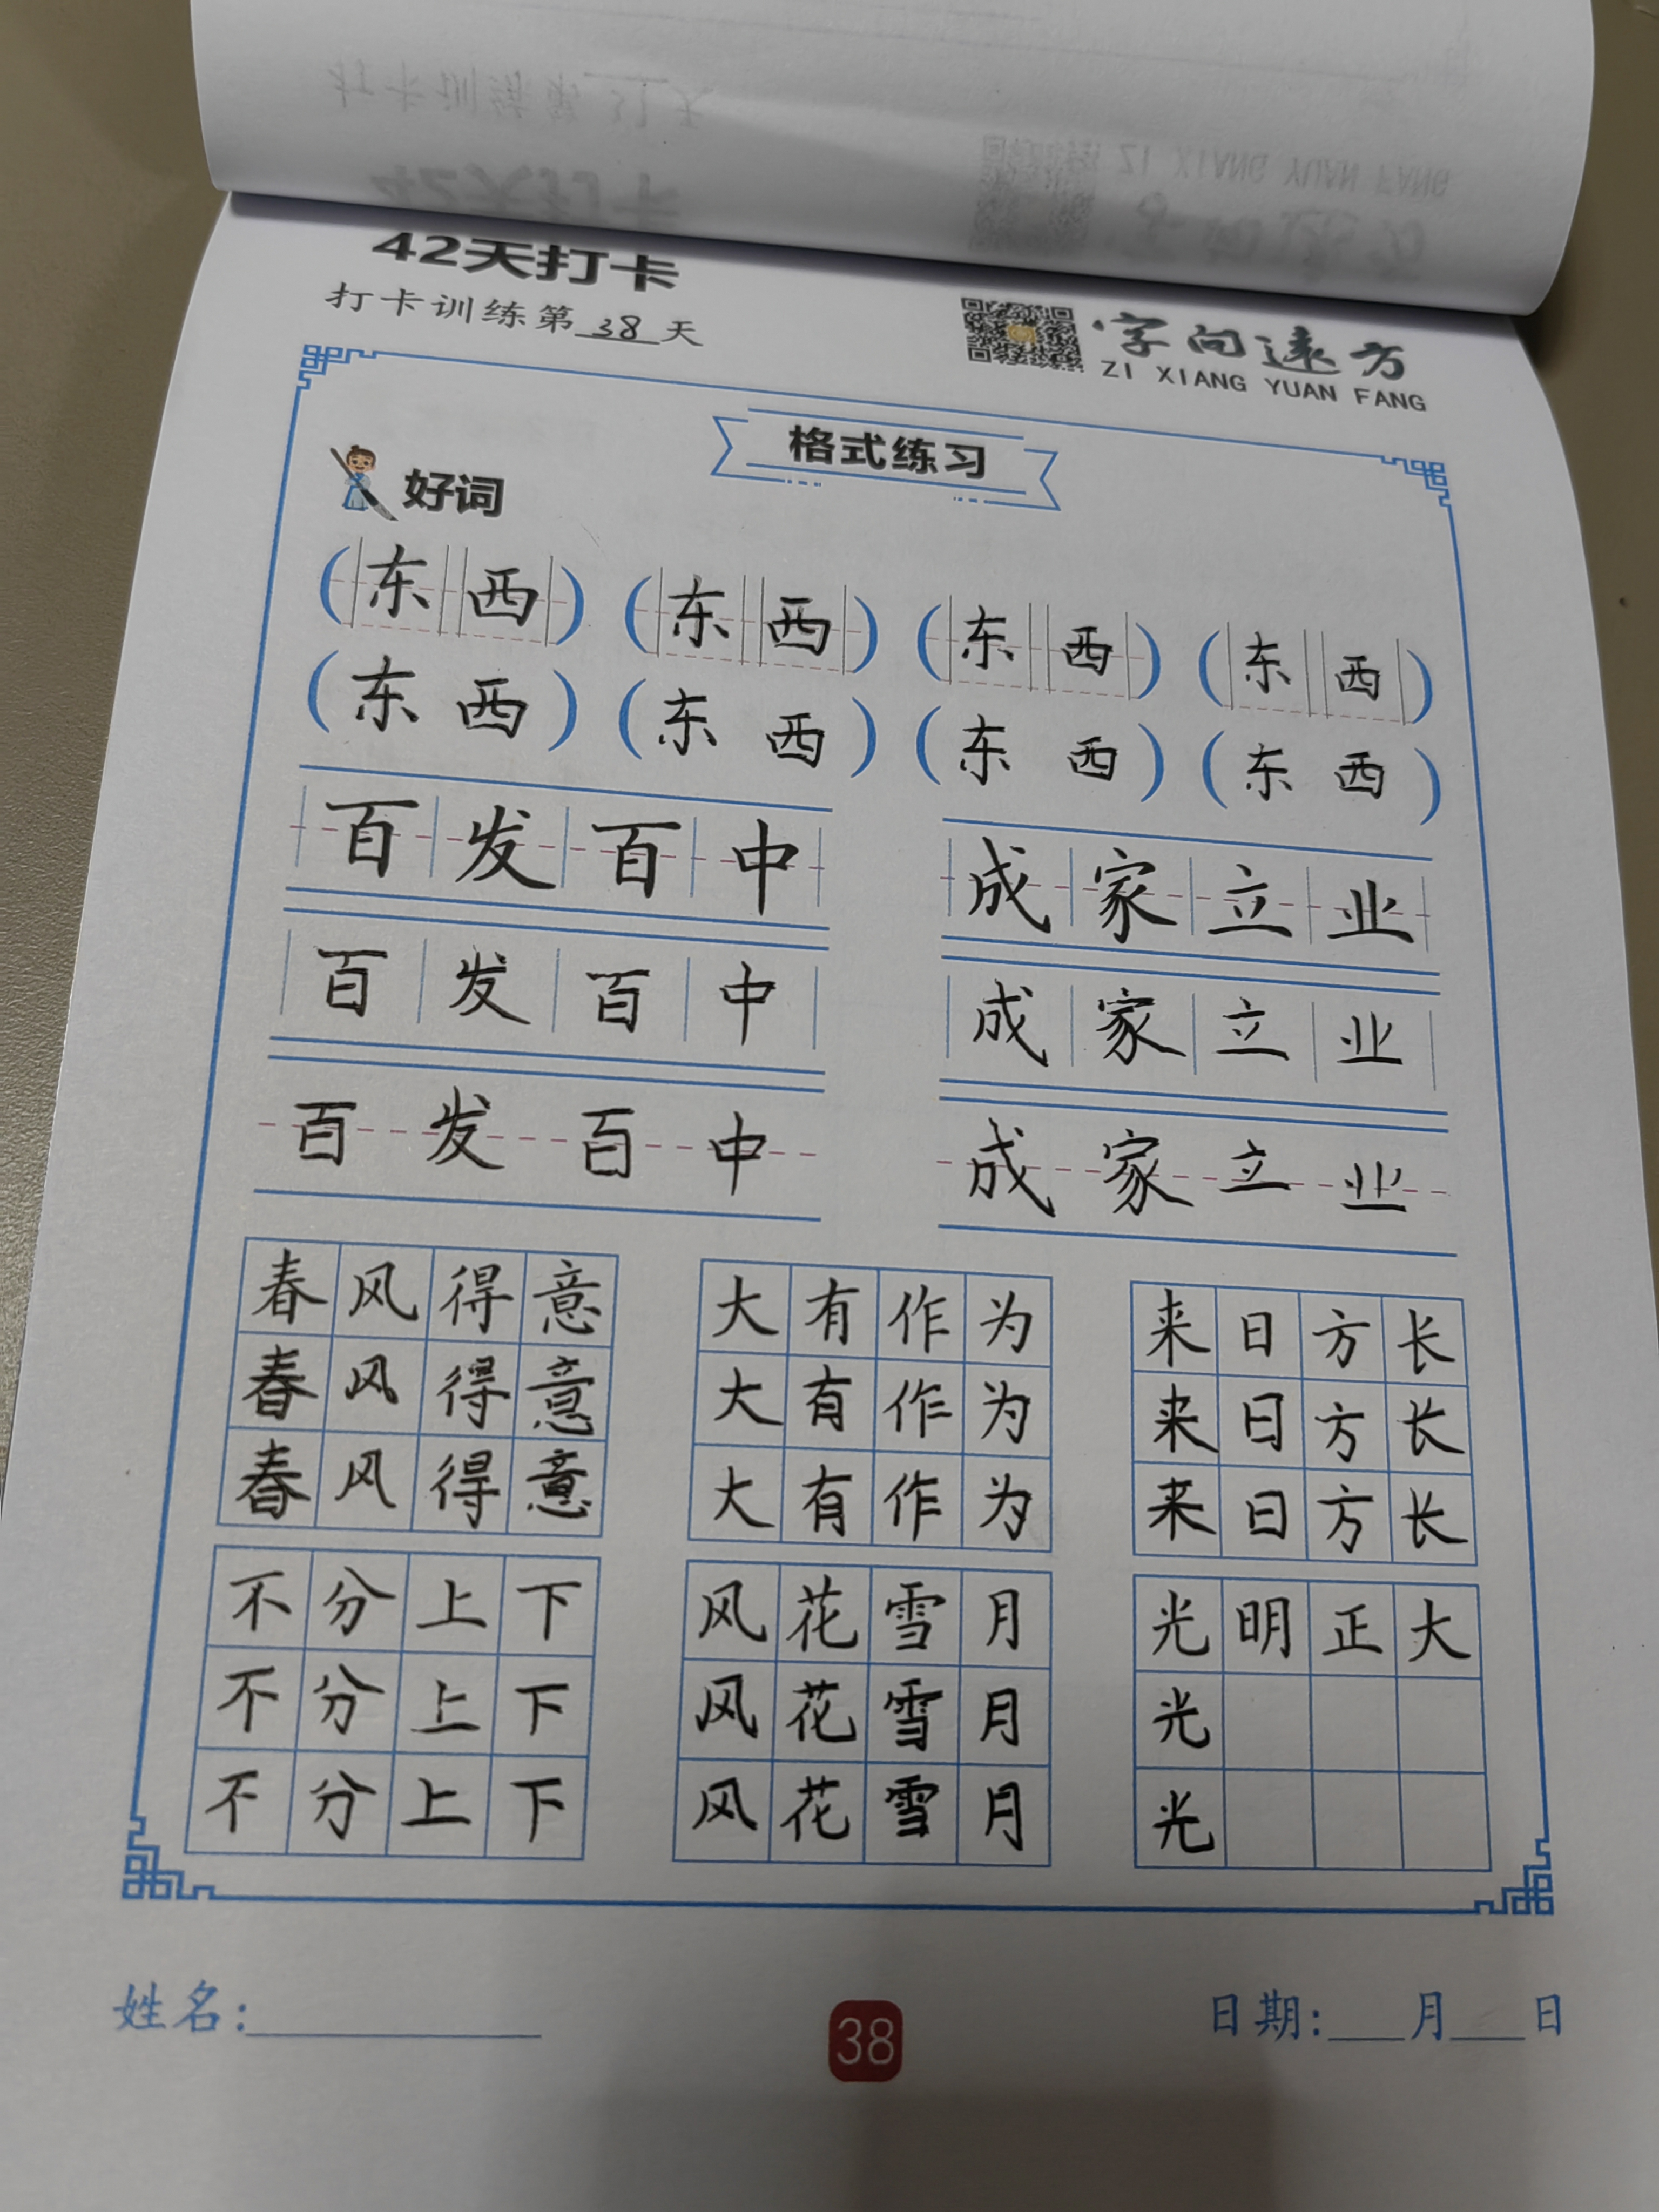 42天打卡
打卡训练第38天
字向远方
ZI XIANG YUAN FANG
格式练习
好词
(东西) (东西) (东西) (东西)
(东西) (东西) (东西) (东西)
百发百中 成家立业
百发百中 成家立业
百发百中 成家立业
春风得意 大有作为 来日方长
春风得意 大有作为 来日方长
春风得意 大有作为 来日方长
不分上下 风花雪月 光明正大
不分上下 风花雪月 光
不分上下 风花雪月 光
姓名:
38
日期:___月___日